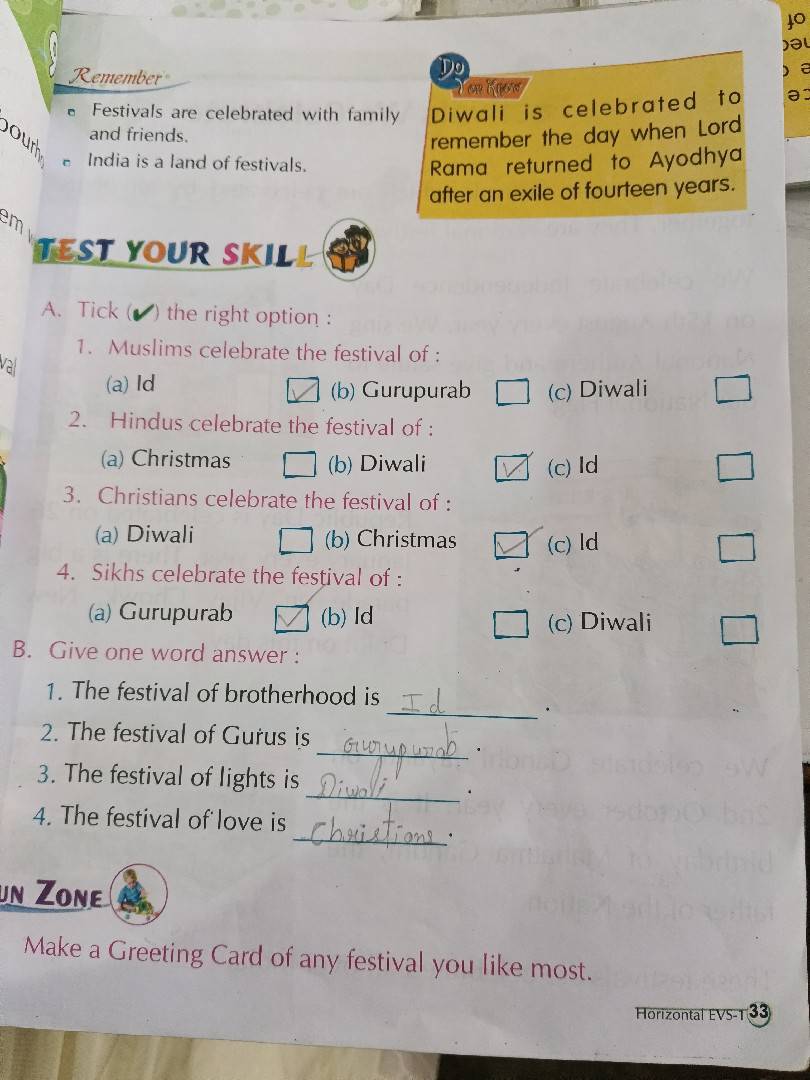 Remember
Festivals are celebrated with family
and friends.
India is a land of festivals.
Do
You Know
Diwali is celebrated to
remember the day when Lord
Rama returned to Ayodhya
after an exile of fourteen years.
TEST YOUR SKILL
A. Tick (✔) the right option :
1. Muslims celebrate the festival of :
(a) Id ✓ (b) Gurupurab (c) Diwali
2. Hindus celebrate the festival of :
(a) Christmas (b) Diwali ✓ (c) Id
3. Christians celebrate the festival of :
(a) Diwali (b) Christmas ✓ (c) Id
4. Sikhs celebrate the festival of :
(a) Gurupurab ✓ (b) Id (c) Diwali
B. Give one word answer :
1. The festival of brotherhood is Id .
2. The festival of Gurus is Gurupurab .
3. The festival of lights is Diwali .
4. The festival of love is Christians .
UN ZONE
Make a Greeting Card of any festival you like most.
Horizontal EVS-1 33